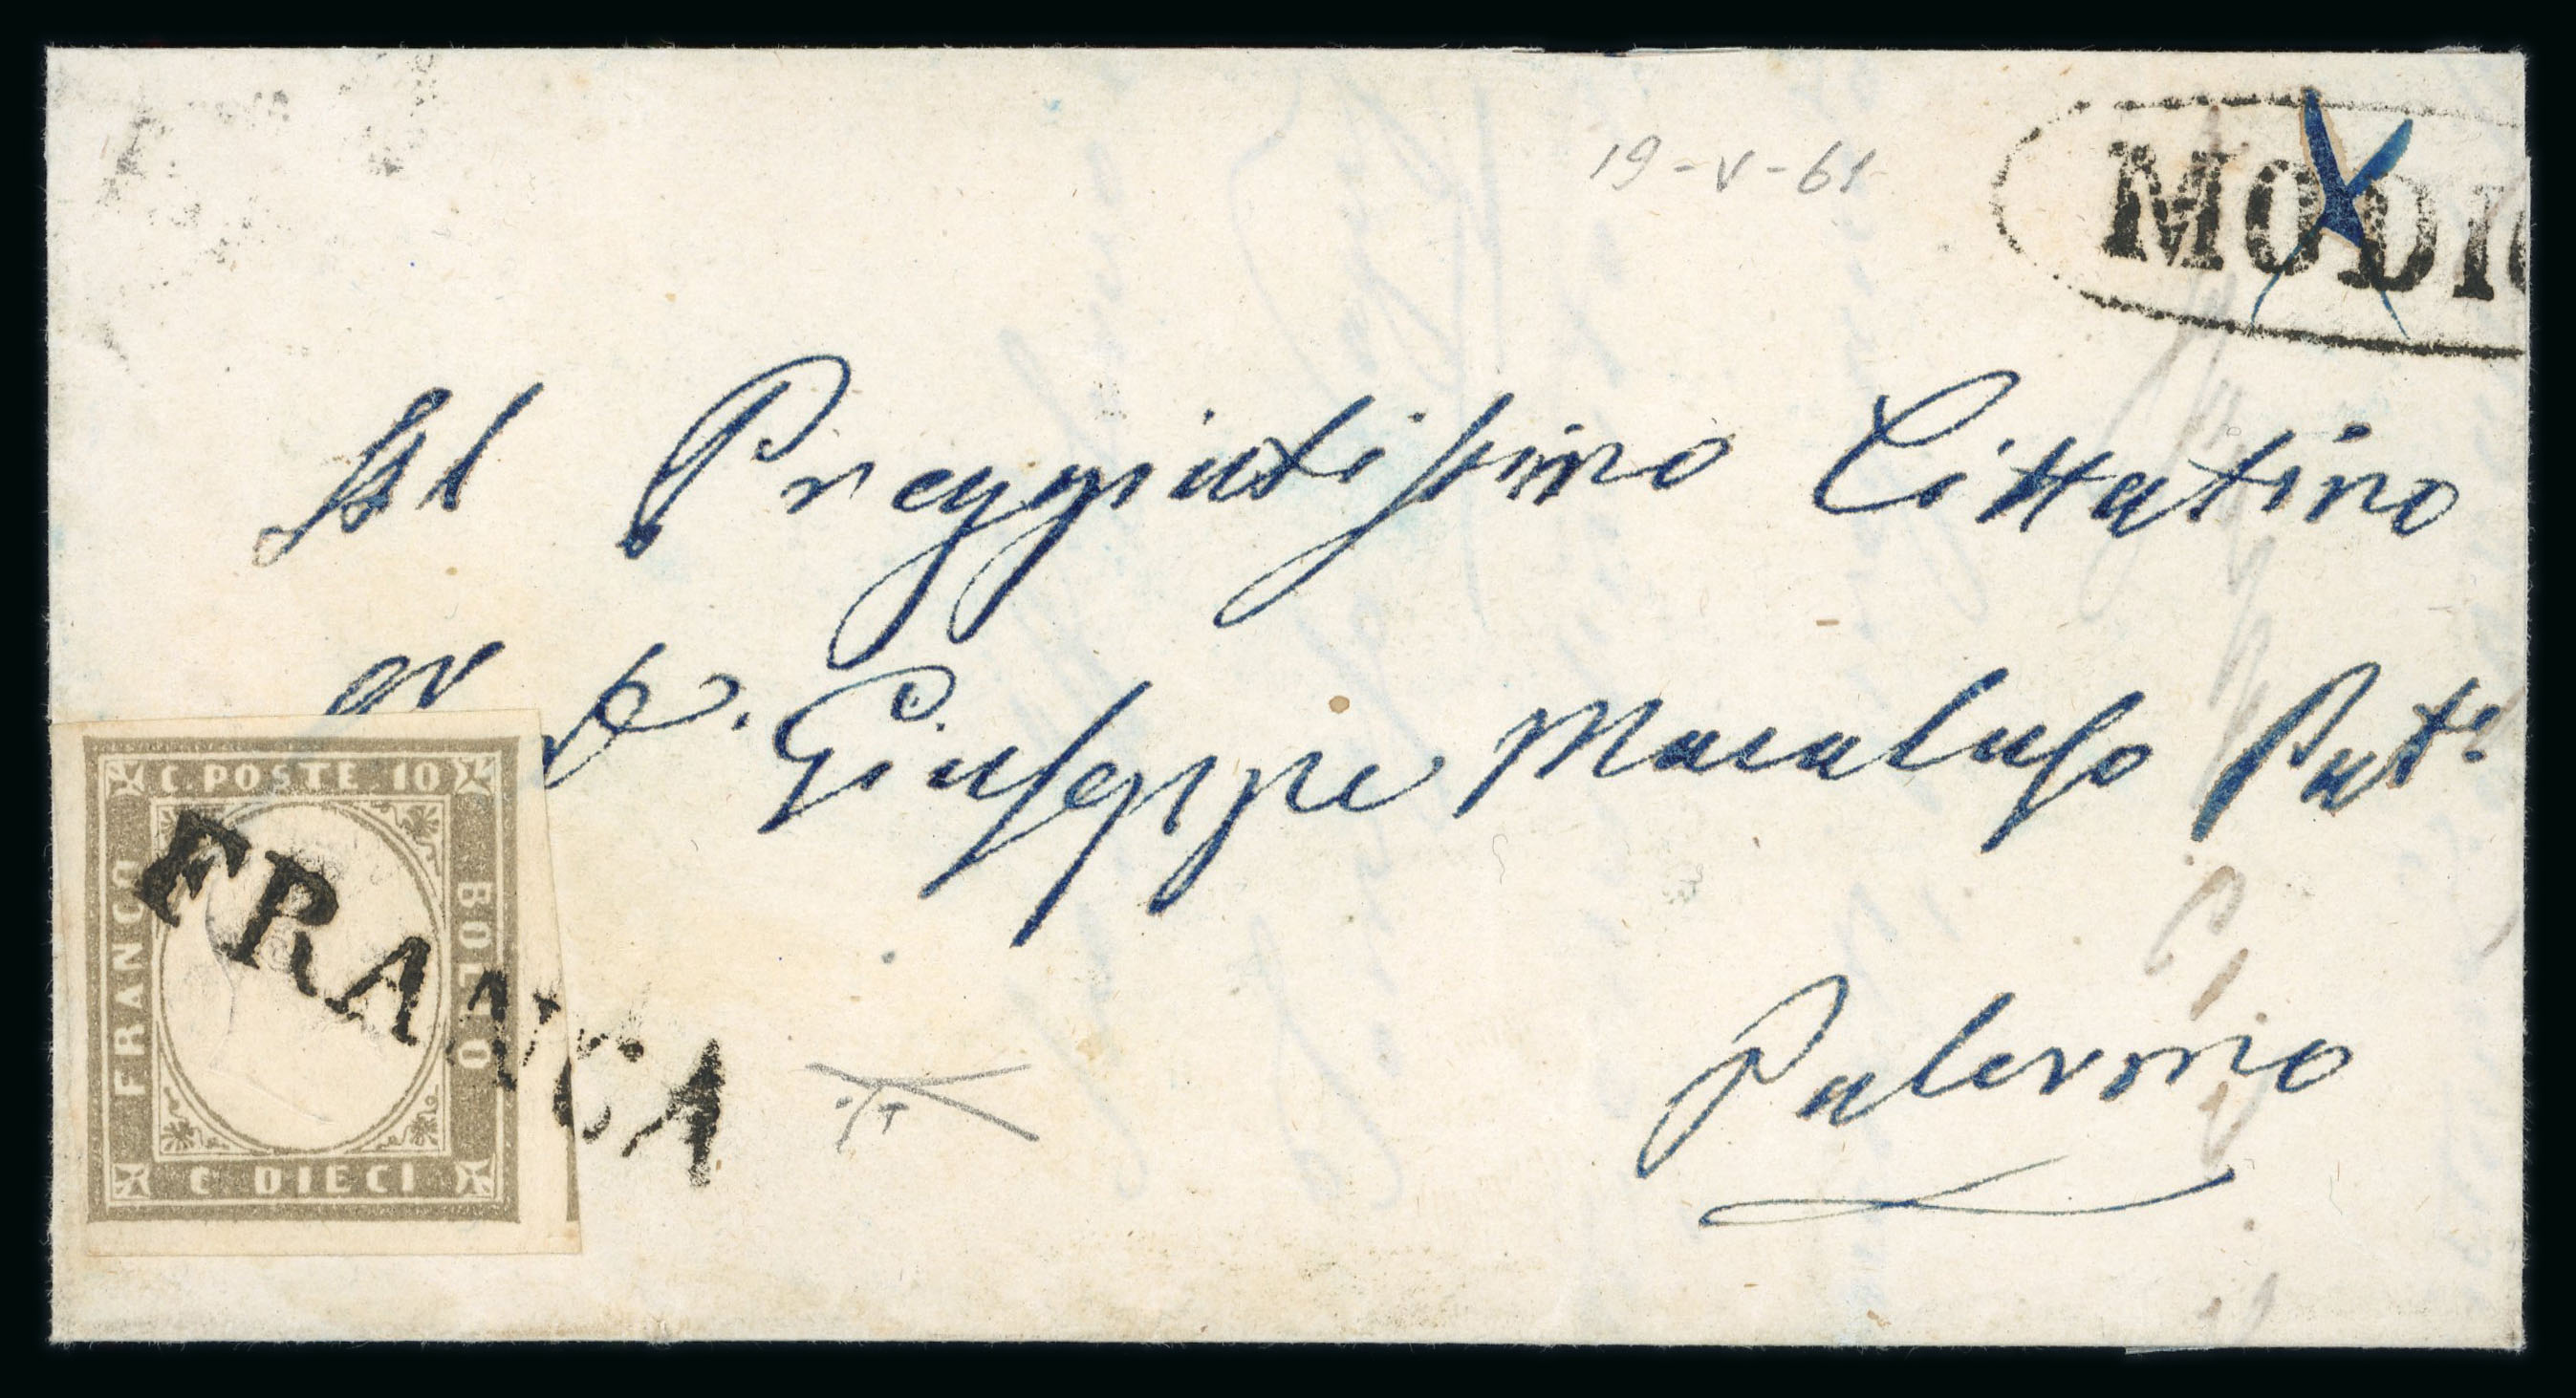 19-V-61
MODI
Al Preggiatissimo Cittatino
D. Giuseppe Macaluso Pat.e
Palermo
C. POSTE 10
FRANCO
BOLLO
C DIECI
FRANCA